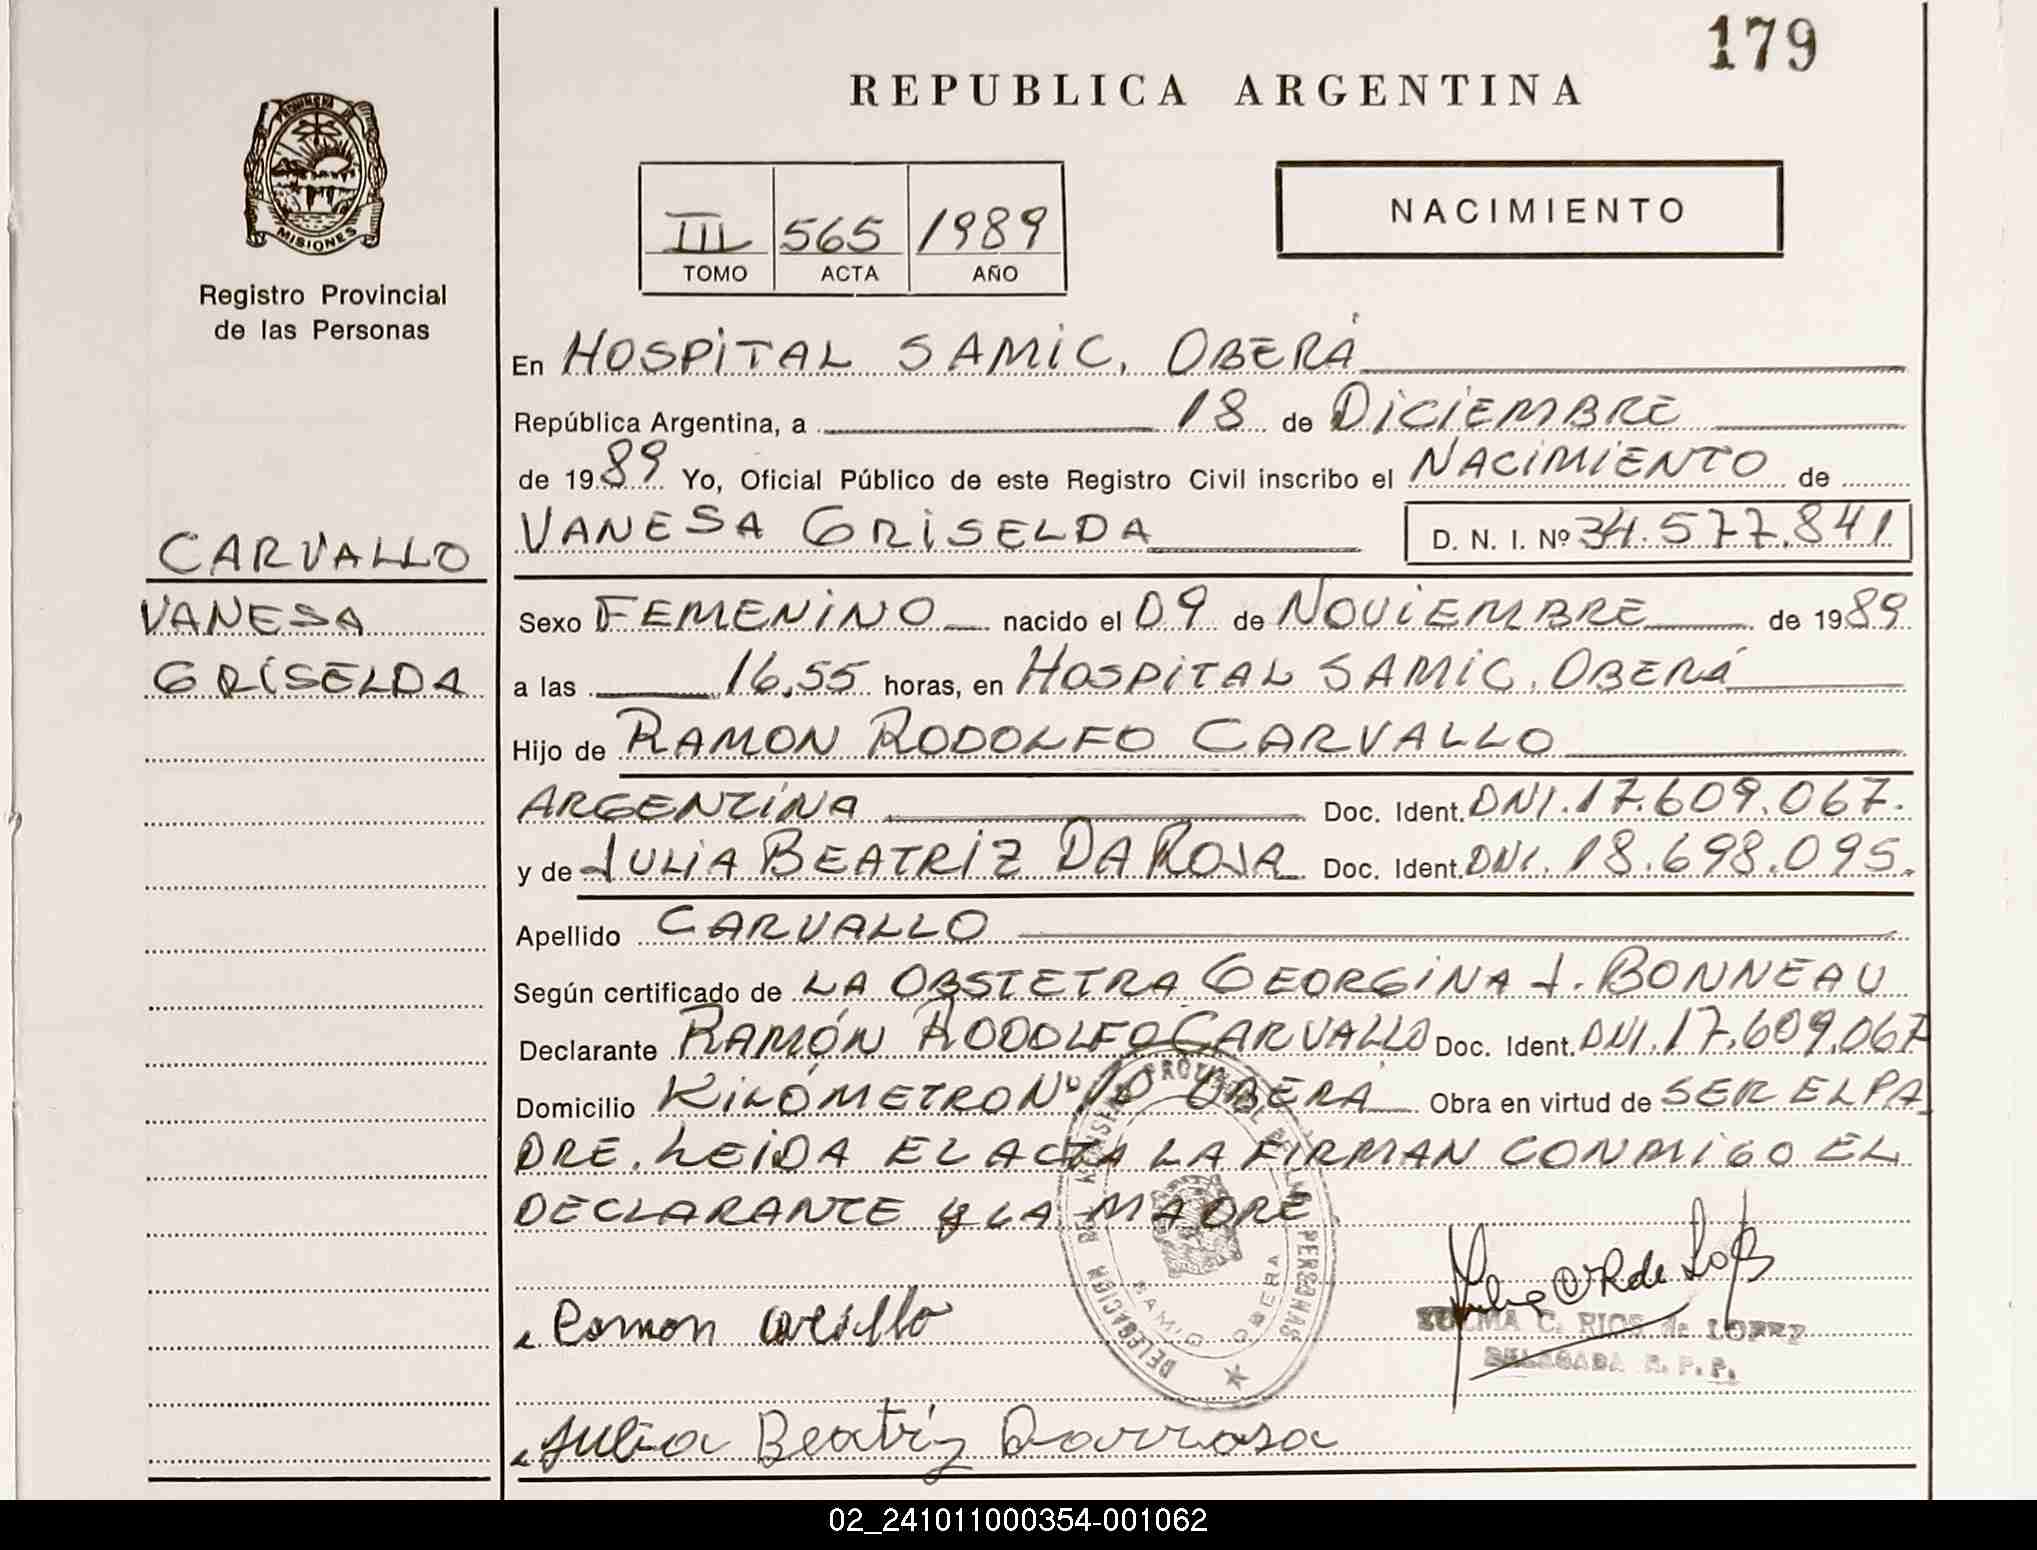 179
REPUBLICA ARGENTINA
PROVINCIA DE
MISIONES
Registro Provincial
de las Personas
III 565 1989
TOMO ACTA AÑO
NACIMIENTO
En HOSPITAL SAMIC. OBERÁ
República Argentina, a 18 de DICIEMBRE
de 1989 Yo, Oficial Público de este Registro Civil inscribo el NACIMIENTO de
VANESA GRISELDA D. N. I. Nº 34.577.841
CARVALLO
VANESA
GRISELDA
Sexo FEMENINO nacido el 09 de NOVIEMBRE de 1989
a las 16,55 horas, en HOSPITAL SAMIC. OBERÁ
Hijo de RAMON RODOLFO CARVALLO
ARGENTINA Doc. Ident. DNI.17.609.067.
y de JULIA BEATRIZ DA ROSA Doc. Ident. DNI. 18.698.095.
Apellido CARVALLO
Según certificado de LA OBSTETRA GEORGINA J. BONNEAU
Declarante RAMÓN RODOLFO CARVALLO Doc. Ident. DNI.17.609.067
Domicilio KILÓMETRO Nº 10 OBERÁ Obra en virtud de SER EL PA
DRE. LEIDA EL ACTA LA FIRMAN CONMIGO EL
DECLARANTE Y LA MADRE
DELEGACION REGISTRO PROVINCIAL DE LAS PERSONAS
SAMIC OBERA
Ramon
ZULMA C. RIOS de LOPEZ
DELEGADA R. P. P.
Julia Beatriz Darrosa
02_241011000354-001062